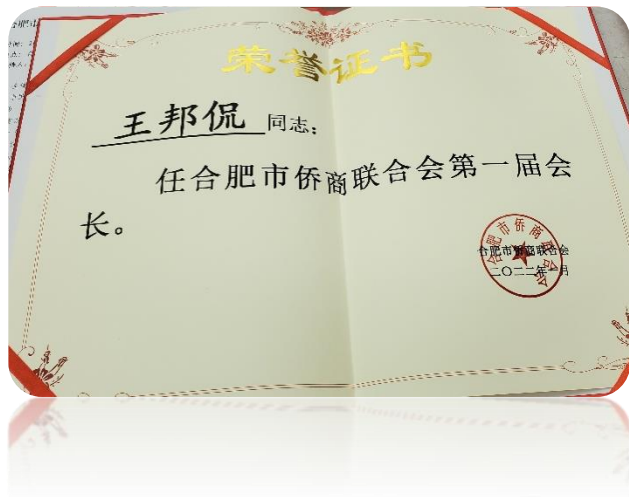 荣誉证书
王邦侃 同志：
任合肥市侨商联合会第一届会
长。
合肥市侨商联合会
合肥市侨商联合会
二〇二二年一月